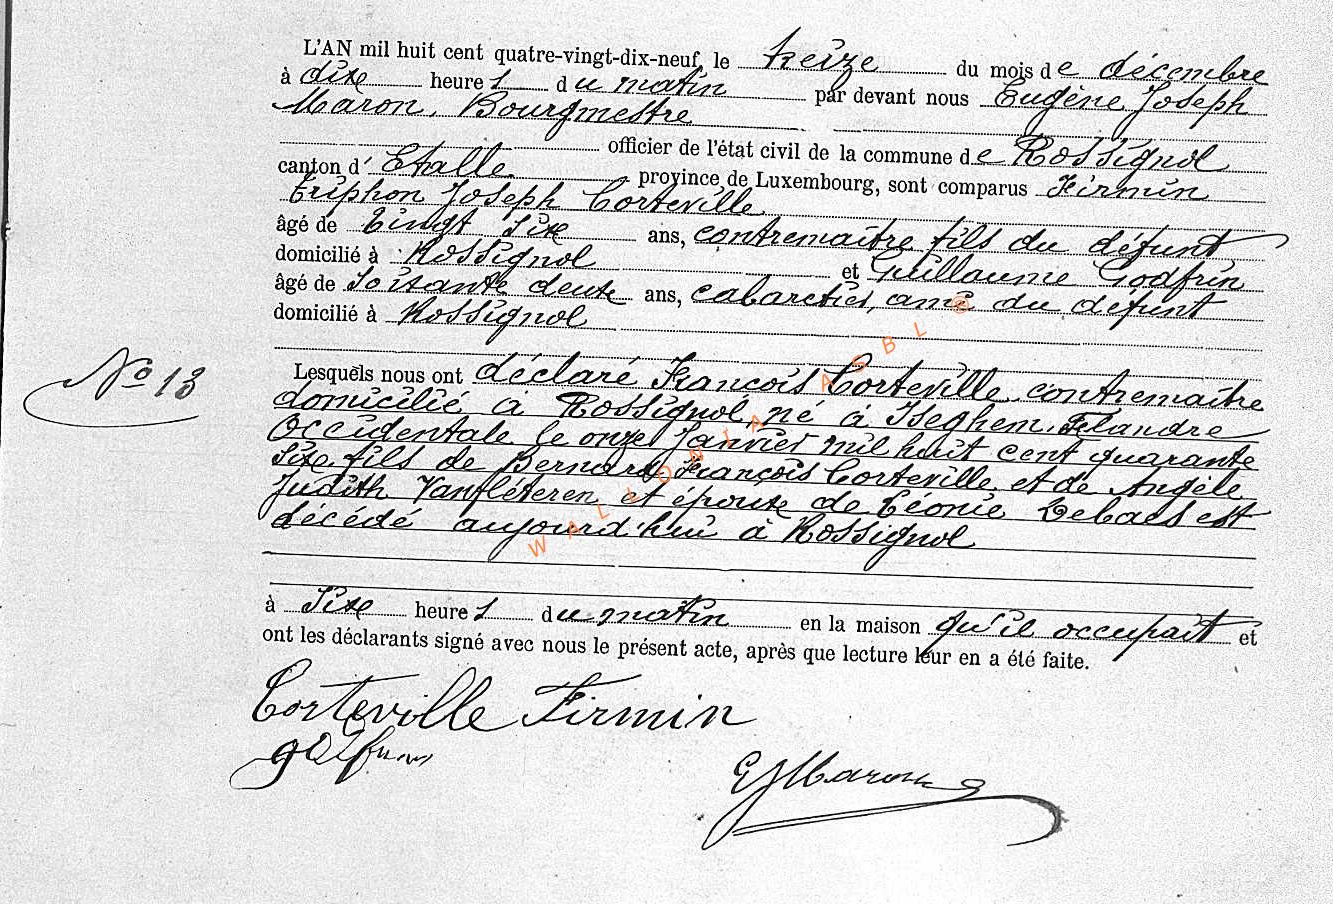 L'AN mil huit cent quatre-vingt-dix-neuf, le treize du mois de décembre
à dixe heures du matin par devant nous Eugène Joseph
Maron, Bourgmestre
officier de l'état civil de la commune de Rossignol
canton d'Etalle province de Luxembourg, sont comparus Firmin
Triphon Joseph Corteville
âgé de Vingt Sixe ans, contremaître fils du défunt
domicilié à Rossignol et Guillaume Godfrin
âgé de Soixante deuxe ans, cabaretier, ami du défunt
domicilié à Rossignol
Nº 13
Lesquels nous ont déclaré François Corteville contremaître
domicilié à Rossignol, né à Iseghem, Flandre
Occidentale le onze Janvier mil huit cent quarante
Sixe fils de Bernard François Corteville et de Angèle
Judith Vanfléteren et époux de Léonie Debaes est
décédé aujourd'hui à Rossignol
WALLONIA ASBL ®
à Sixe heures du matin en la maison qu'il occupait et
ont les déclarants signé avec nous le présent acte, après que lecture leur en a été faite.
Corteville Firmin
EJMaron